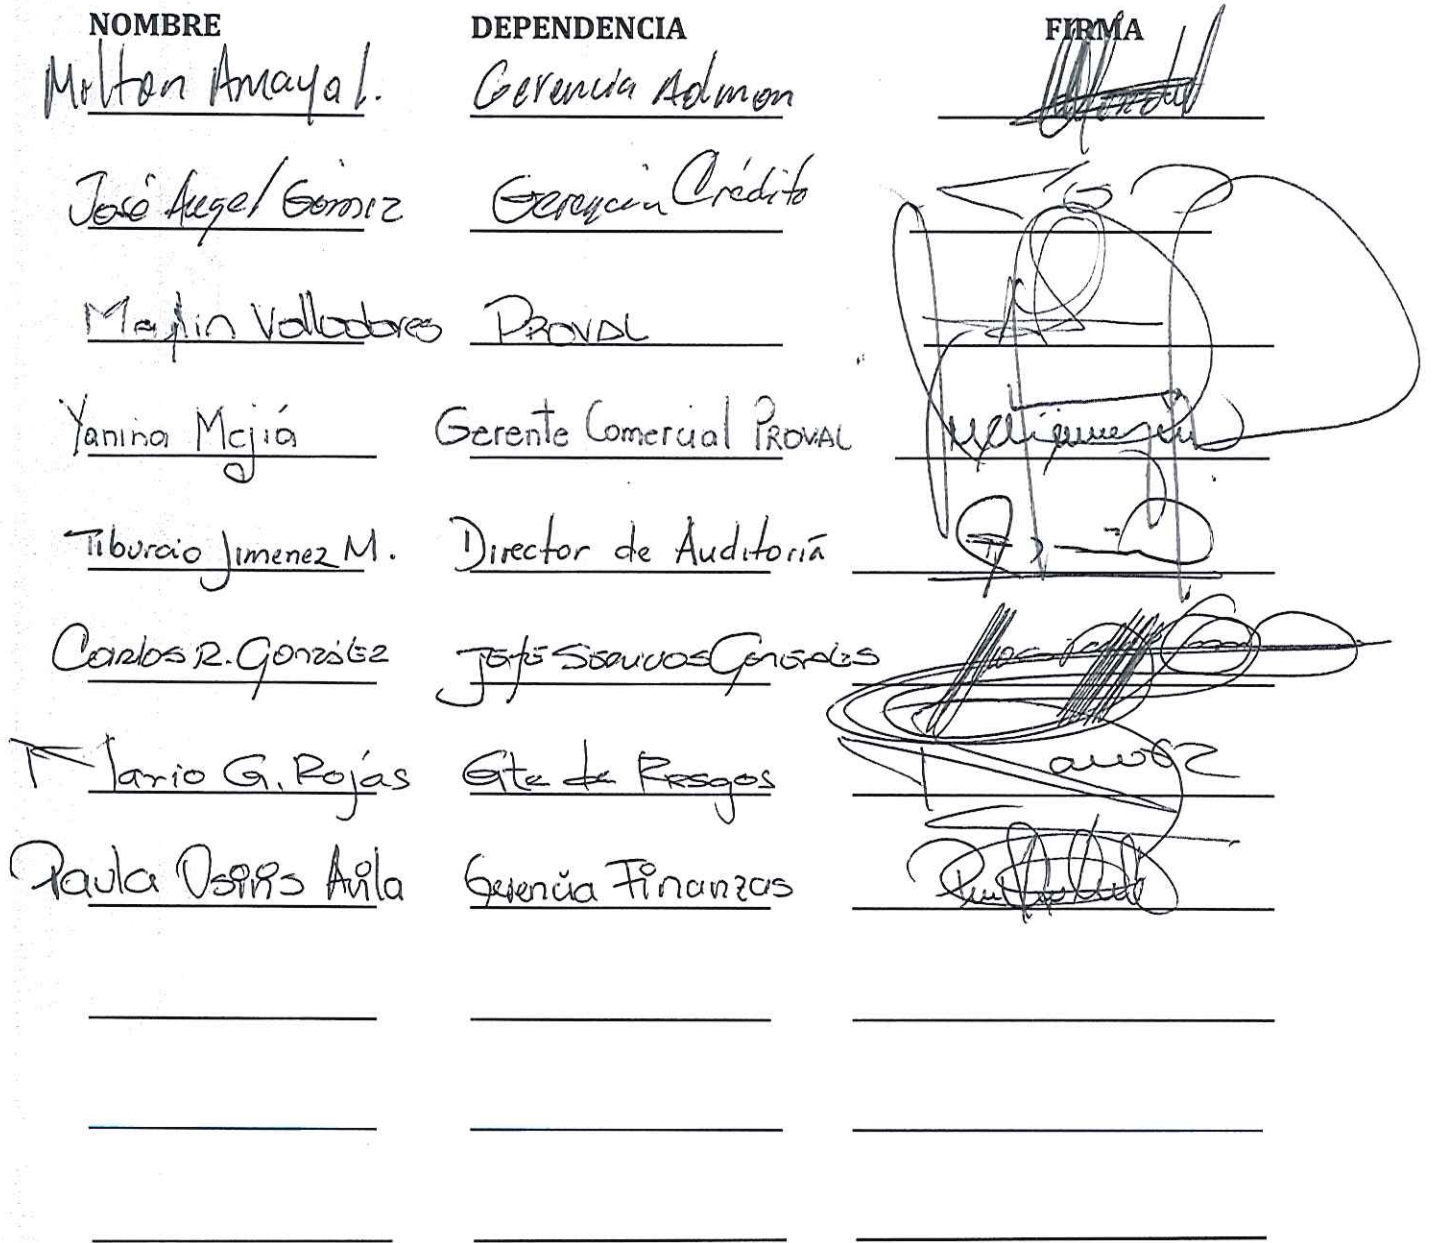 NOMBRE DEPENDENCIA FIRMA
Milton Amaya L. Gerencia Admon
José Angel Gómez Gerencia Crédito
Marlin Valladares PROVAL
Yanina Mejía Gerente Comercial PROVAL
Tiburcio Jimenez M. Director de Auditoría
Carlos R. González Jefe Servicios Generales
Mario G. Rojas Gte de Riesgos
Paula Osiris Avila Gerencia Finanzas